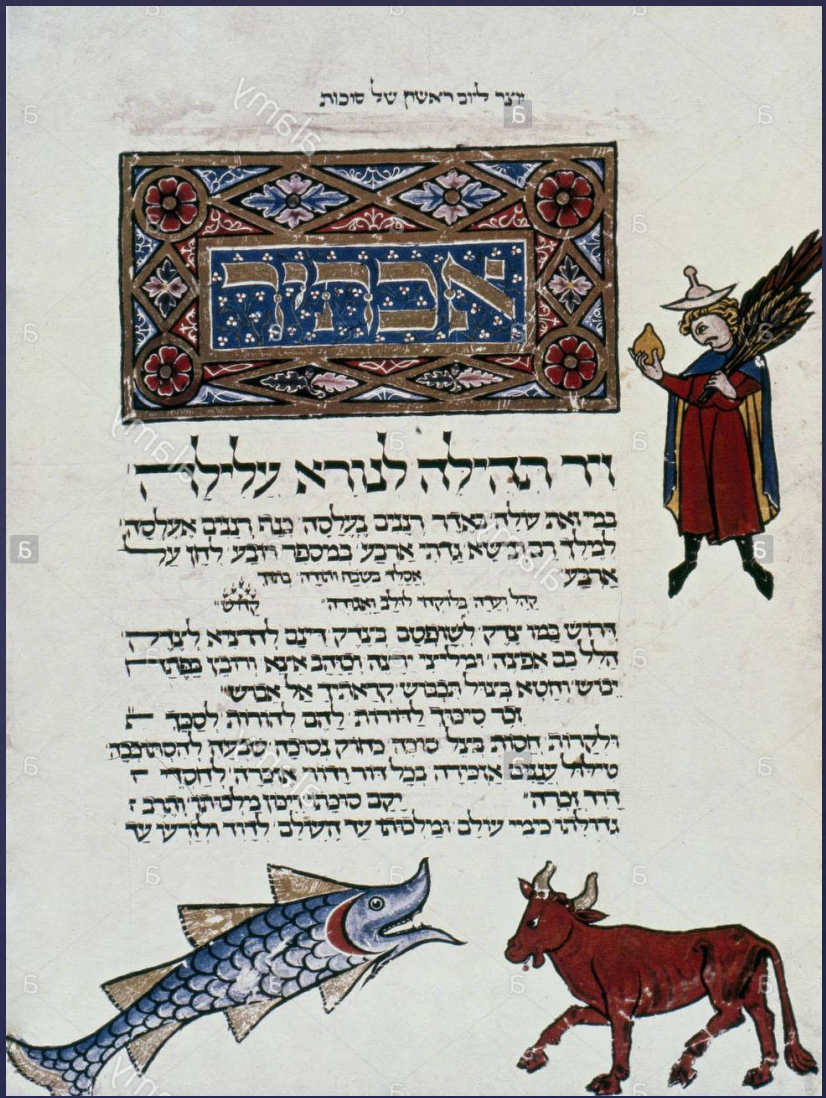 יוצר ליום ראשון של סוכות
אכתיר
זר תהילה לנורא עלילה
במי זאת עולה כאדר רננים בעלסה כנף רננים אעלסה
למלך רם ונישא גדתי ארבע במספר רובע לחן על
ארבע אסלד בשבח ותודה בתוך
קהל ועדה בלוקחי לולב ואגודה קדוש
במי צדק לשופטם בצדק דינם להוציא לצדק
הלל בם אפיצה ומליצי ירצה
יבוש וחטא בצול תכבוש קראתיך אל אנוש
זכר סיכוך לדורות להם להורות לסכך
ולקרות חסות בצל סוכה בחוק נסוכה שבעה להסתוככה
טילול עננים אזכירה בכל דור ודור אומרה לחסדי
דוד זכרה יקם סוכתו ויכון מלכותו ותרב
גדולתו כימי עולם ומלכותו עד השולם לדוד ולזרעו עד
alamy